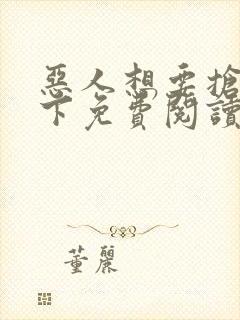 惡人想要搶
下免費閱讀
董麗